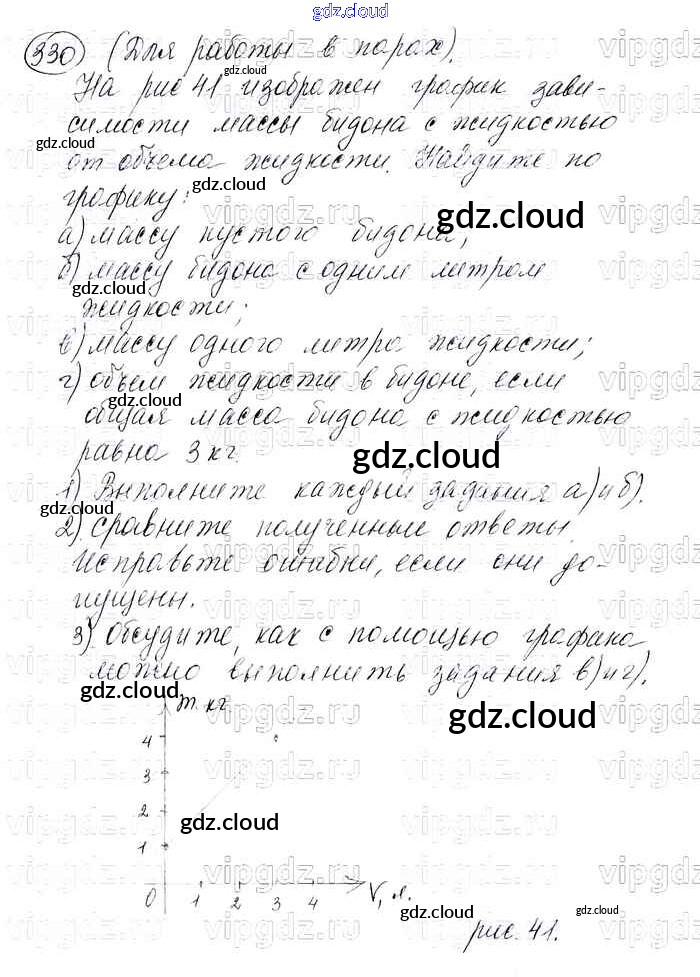 gdz.cloud
330 (Для работы в парах).
На рис 41 изображен график зави-
симости массы бидона с жидкостью
от объема жидкости. Найдите по
графику:
а) массу пустого бидона;
б) массу бидона с одним литром
жидкости;
в) массу одного литра жидкости;
г) объем жидкости в бидоне, если
общая масса бидона с жидкостью
равна 3 кг.
1) Выполните каждый задания а) и б).
2) сравните полученные ответы.
Исправьте ошибки, если они до-
пущены.
3) Обсудите, как с помощью графика
можно выполнить задания в) и г).
m. кг
4
3
2
1
0 1 2 3 4 V, л.
рис. 41.
gdz.cloud
vipgdz.ru